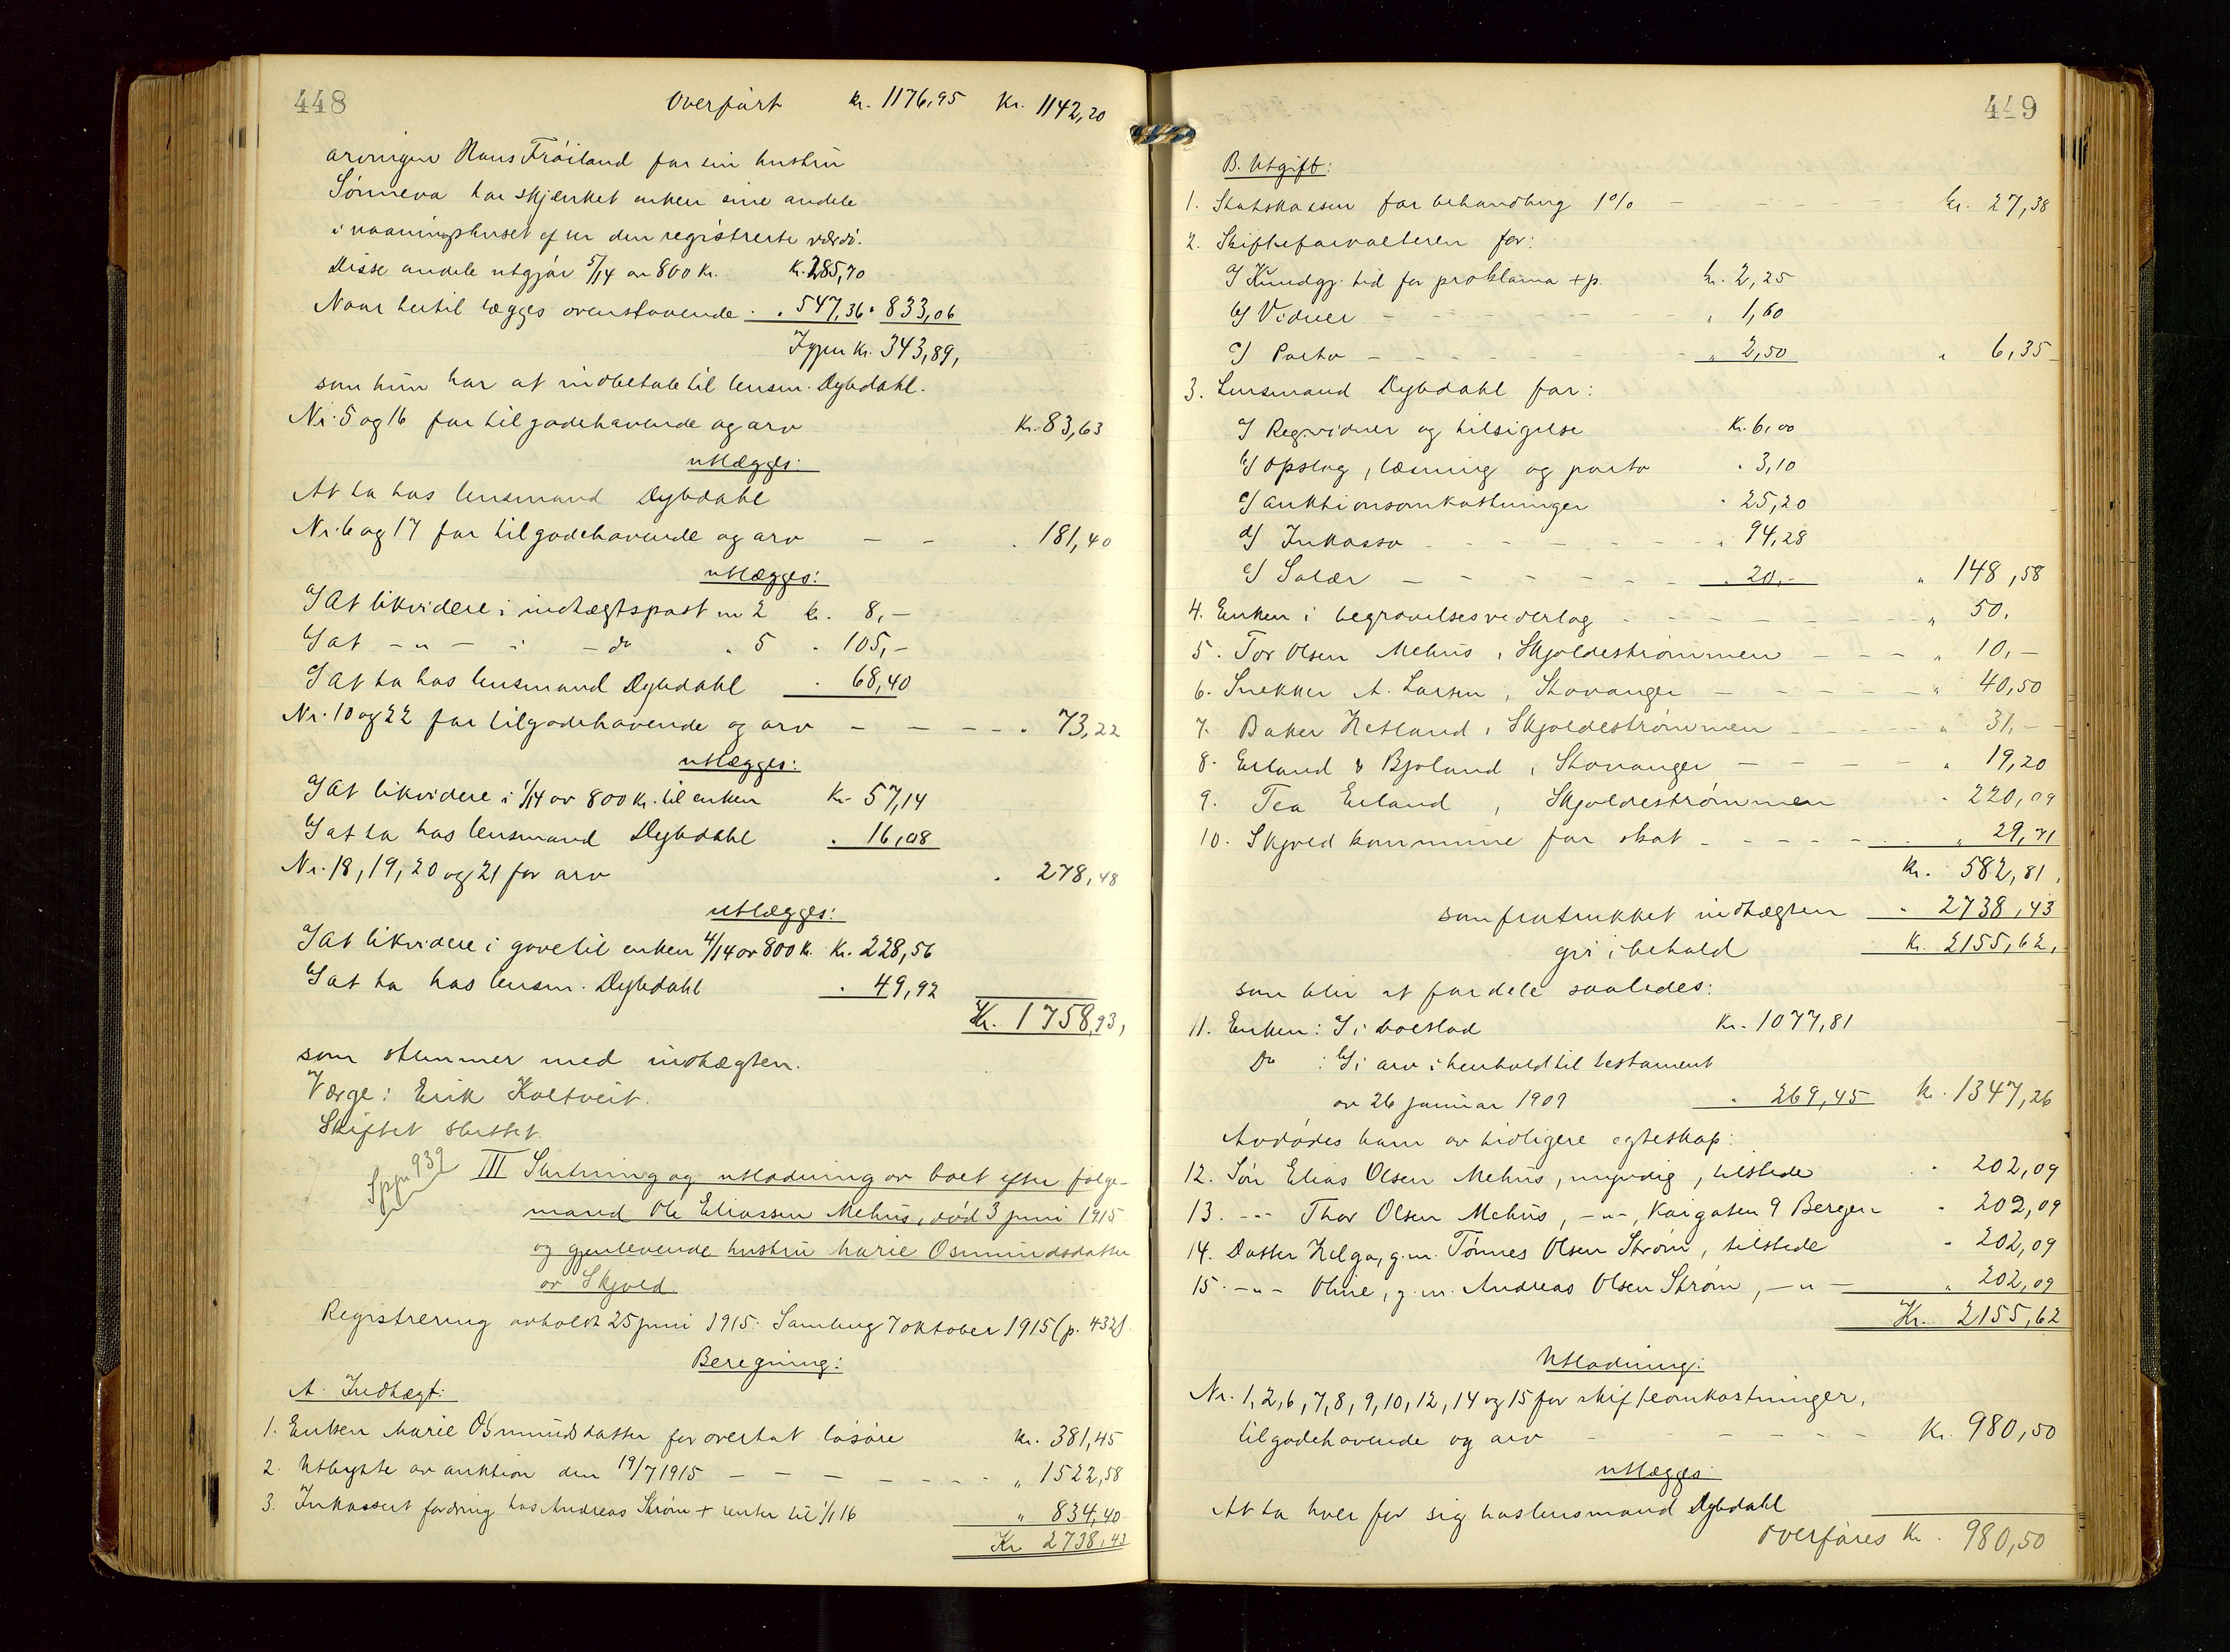 448
Overført kr. 1176,95 Kr. 1142,20
arvingen Hans Frøiland for sin hustru
Sønneva har skjenket enken sine andele
i vaaningshuset efter den registrerte værdi.
Disse andele utgjør 5/14 av 800 Kr. Kr. 285,70
Naar hertil lægges ovenstaaende . „ 547,36 „ 833,06
Igjen Kr. 343,89,
som hun har at indbetale til lensm. Dybdahl.
Nr. 5 og 16 for tilgodehavende og arv Kr. 83,63
utlægges:
At ta hos lensmand Dybdahl
Nr. 6 og 17 for tilgodehavende og arv — — „ 181,40
utlægges:
a) At likvidere i indtægtspost nr 2 kr. 8,—
b) at — „ — i — do „ 5 „ 105,—
c) At ta hos lensmand Dybdahl „ 68,40
Nr. 10 og 22 for tilgodehavende og arv — — — „ 73,22
utlægges:
a) At likvidere i 1/14 av 800 Kr. til enken Kr. 57,14
b) at ta hos lensmand Dybdahl „ 16,08
Nr. 18, 19, 20 og 21 for arv „ 278,48
utlægges:
a) At likvidere i gave til enken 4/14 av 800 K. Kr. 228,56
b) at ta hos lensm. Dybdahl „ 49,92
Kr. 1758,93,
som stemmer med indtægten.
Værge: Erik Koltveit.
Skiftet sluttet.
Sppr 939
III Slutning og utlodning av boet efter følge-
mand Ole Eliassen Mehus, død 3 juni 1915
og gjenlevende hustru Marie Osmundsdatter
av Skjold
Registrering avholdt 25 juni 1915. Samling 7 oktober 1915 (p. 432).
Beregning:
A. Indtægt:
1. Enken Marie Osmundsdatter for overtat løsøre kr. 381,45
2. Utbytte av auktion den 19/7 1915 — — — — „ 1522,58
3. Inkassert fordring hos Andreas Strøm + renter til 1/1 16 „ 834,40
Kr 2738,43
449
B. Utgift:
1. Statskassen for behandling 1% — — — kr. 27,38
2. Skifteforvalteren for:
a) Kundgj. tid for proklama + p. kr. 2,25
b) Vidner — — — „ 1,60
c) Porto — — — „ 2,50 „ 6,35
3. Lensmand Dybdahl for:
a) Reg.vidner og tilsigelse Kr. 6,00
b) Opslag, læsning og porto „ 3,10
c) Auktionsomkostninger „ 25,20
d) Inkasso — — — „ 94,28
e) Salær — — — „ 20,— „ 148,58
4. Enken i begravelsesvederlag — — — „ 50,
5. Tor Olsen Mehus, Skjoldestrømmen — — — „ 10,—
6. Snekker A. Larsen, Stavanger — — — „ 40,50
7. Baker Hetland, Skjoldestrømmen — — — „ 31,—
8. Erland & Bjoland, Stavanger — — — „ 19,20
9. Tea Erland, Skjoldestrømmen „ 220,09
10. Skjold kommune for skat — — — „ 29,71
Kr. 582,81,
som fratrukket indtægten „ 2738,43
gir i behold Kr. 2155,62,
som blir at fordele saaledes:
11. Enken: a) i boeslod Kr. 1077,81
Do : b) i arv i henhold til testament
av 26 januar 1909 „ 269,45 Kr. 1347,26
Avdødes barn av tidligere egteskap:
12. Søn Elias Olsen Mehus, myndig, tilstede „ 202,09
13. — „ — Thor Olsen Mehus, — „ —, Kaigaten 9 Bergen „ 202,09
14. Datter Helga, g.m. Tønnes Olsen Strøm, tilstede „ 202,09
15. — „ — Oline, g.m. Andreas Olsen Strøm, — „ — „ 202,09
Kr. 2155,62
Utlodning:
Nr. 1, 2, 6, 7, 8, 9, 10, 12, 14 og 15 for skifteomkostninger,
tilgodehavende og arv — — — Kr. 980,50
utlægges
At ta hver for sig hos lensmand Dybdahl
Overføres Kr. 980,50